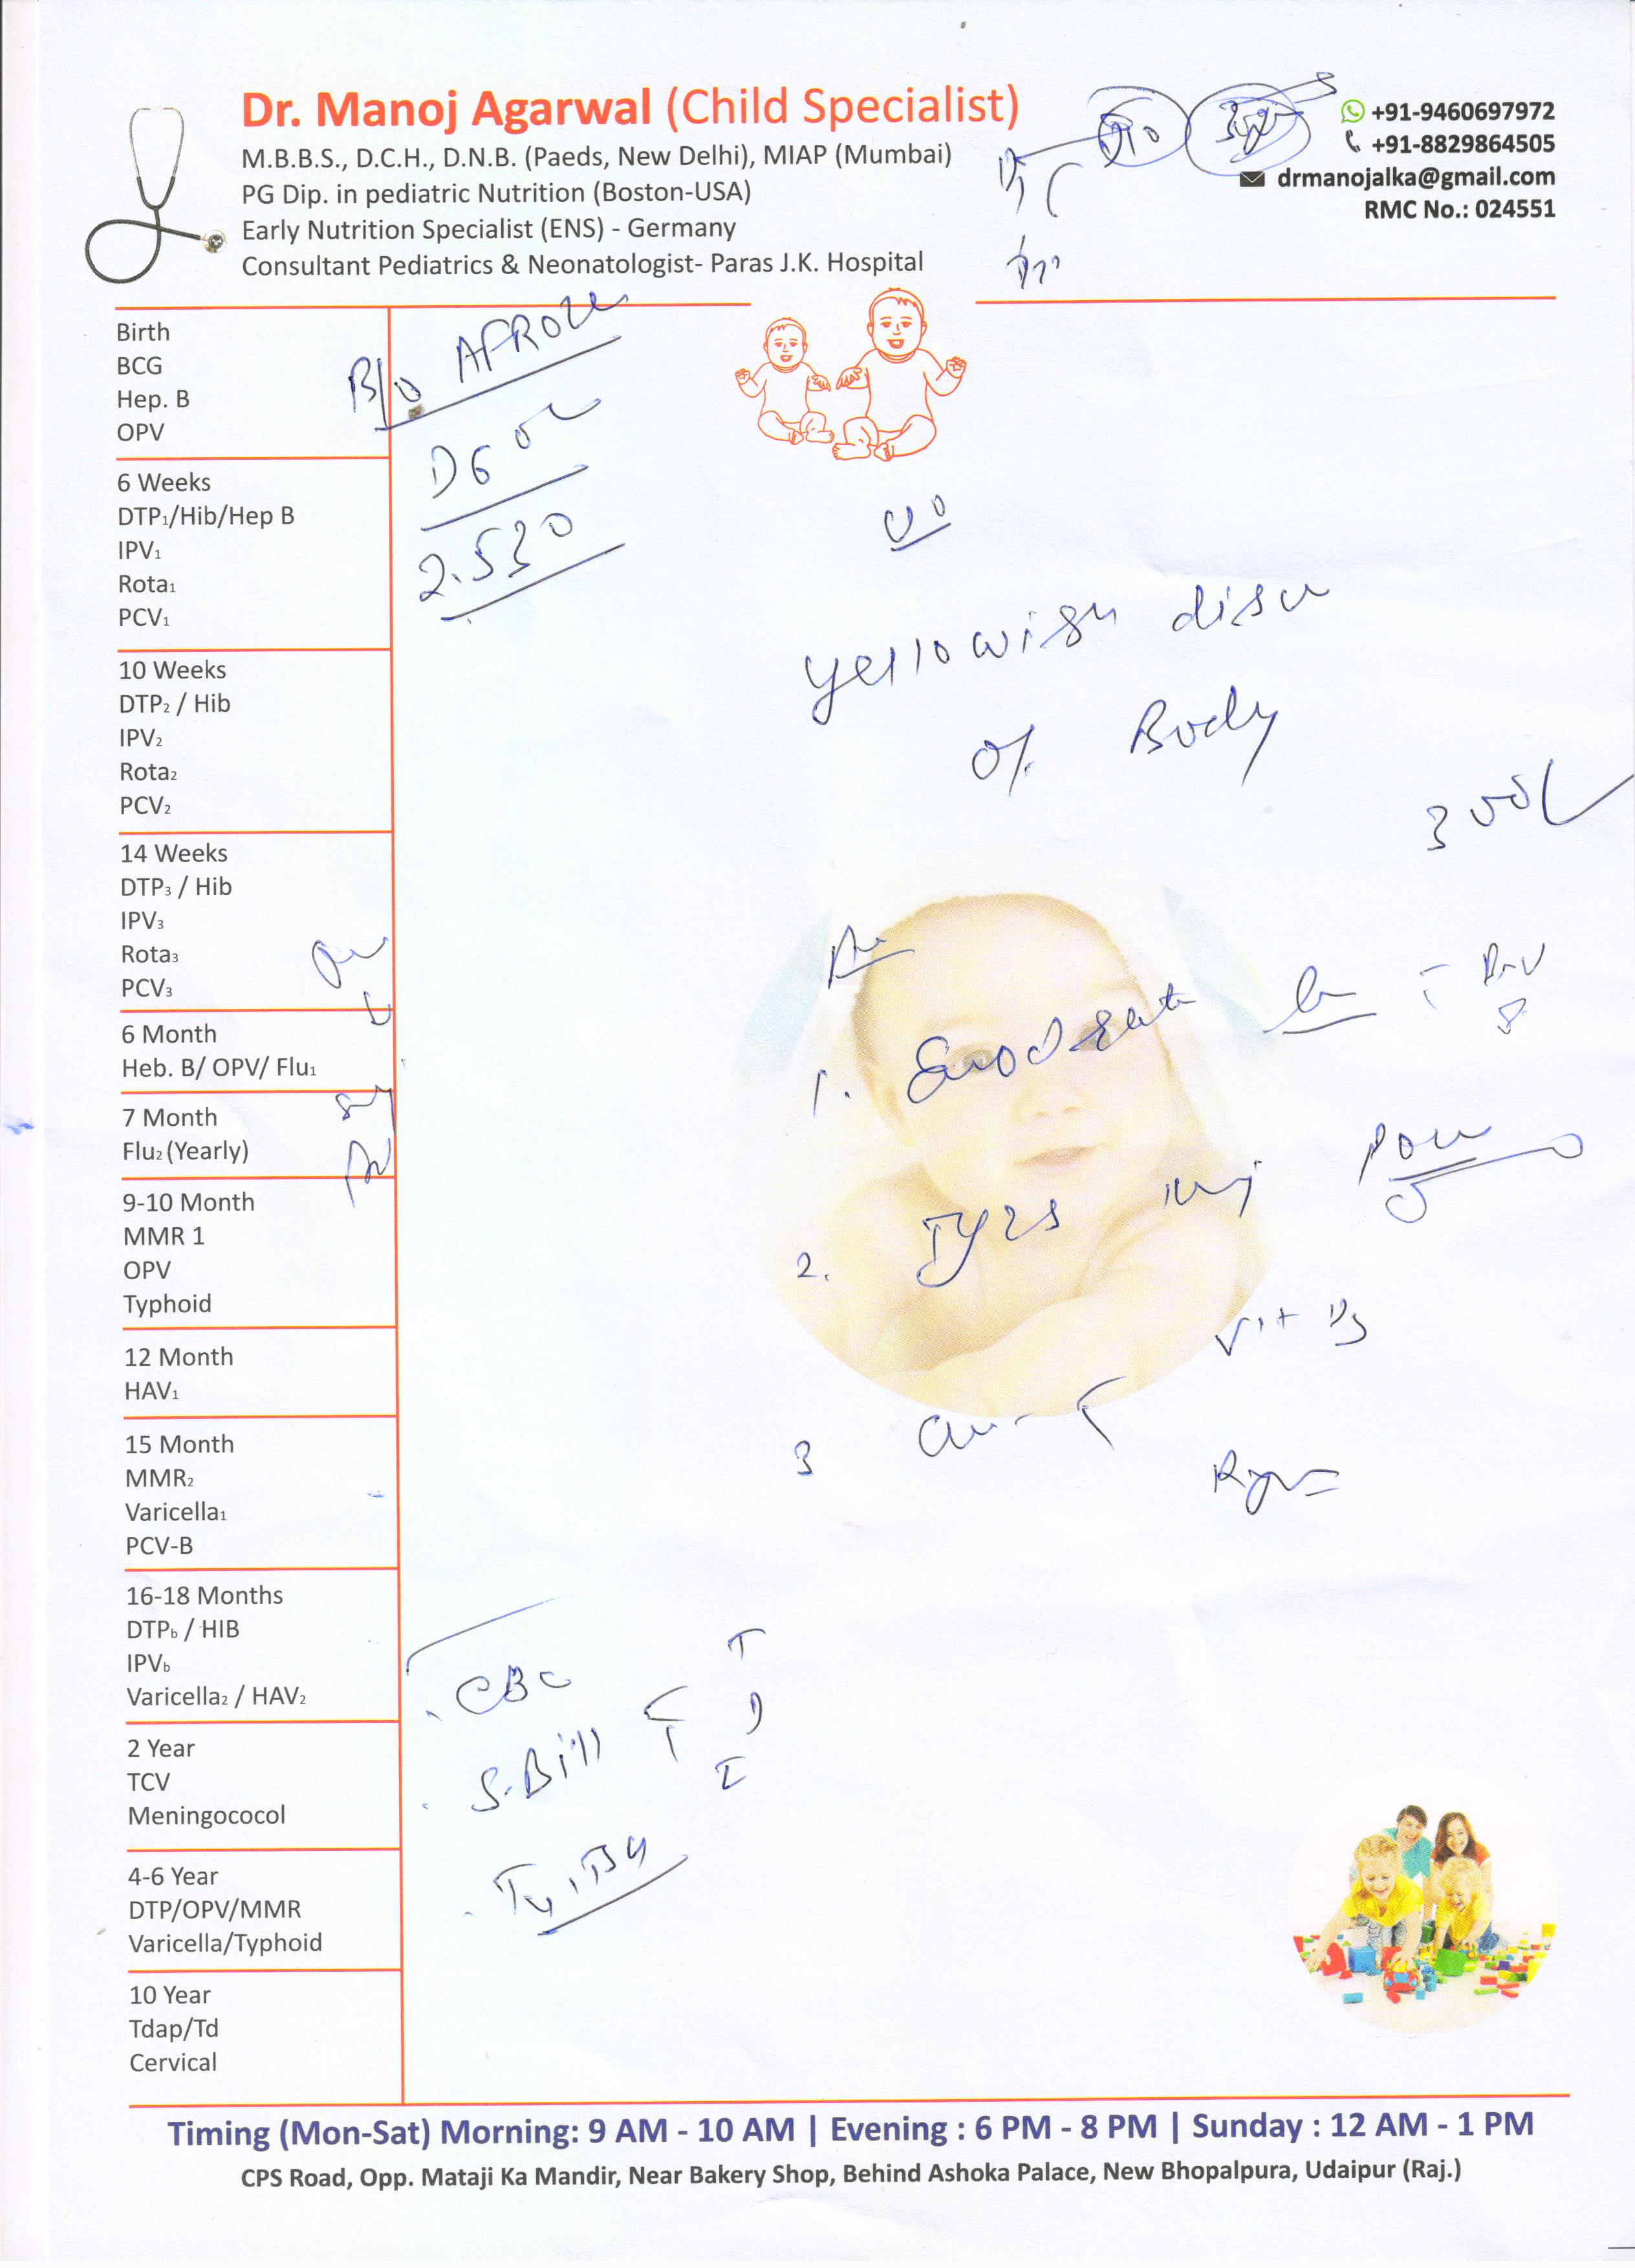 Dr. Manoj Agarwal (Child Specialist)
M.B.B.S., D.C.H., D.N.B. (Paeds, New Delhi), MIAP (Mumbai)
PG Dip. in pediatric Nutrition (Boston-USA)
Early Nutrition Specialist (ENS) - Germany
Consultant Pediatrics & Neonatologist- Paras J.K. Hospital
+91-9460697972
+91-8829864505
drmanojalka@gmail.com
RMC No.: 024551
Birth
BCG
Hep. B
OPV
6 Weeks
DTP1/Hib/Hep B
IPV1
Rota1
PCV1
10 Weeks
DTP2 / Hib
IPV2
Rota2
PCV2
14 Weeks
DTP3 / Hib
IPV3
Rota3
PCV3
6 Month
Heb. B/ OPV/ Flu1
7 Month
Flu2 (Yearly)
9-10 Month
MMR 1
OPV
Typhoid
12 Month
HAV1
15 Month
MMR2
Varicella1
PCV-B
16-18 Months
DTPb / HIB
IPVb
Varicella2 / HAV2
2 Year
TCV
Meningococol
4-6 Year
DTP/OPV/MMR
Varicella/Typhoid
10 Year
Tdap/Td
Cervical
B/o AFROZ
D6
2.530
yellowish
of Body
1.
2.
Vit D3
3
CBC
S.Bill T D I
Timing (Mon-Sat) Morning: 9 AM - 10 AM | Evening : 6 PM - 8 PM | Sunday : 12 AM - 1 PM
CPS Road, Opp. Mataji Ka Mandir, Near Bakery Shop, Behind Ashoka Palace, New Bhopalpura, Udaipur (Raj.)